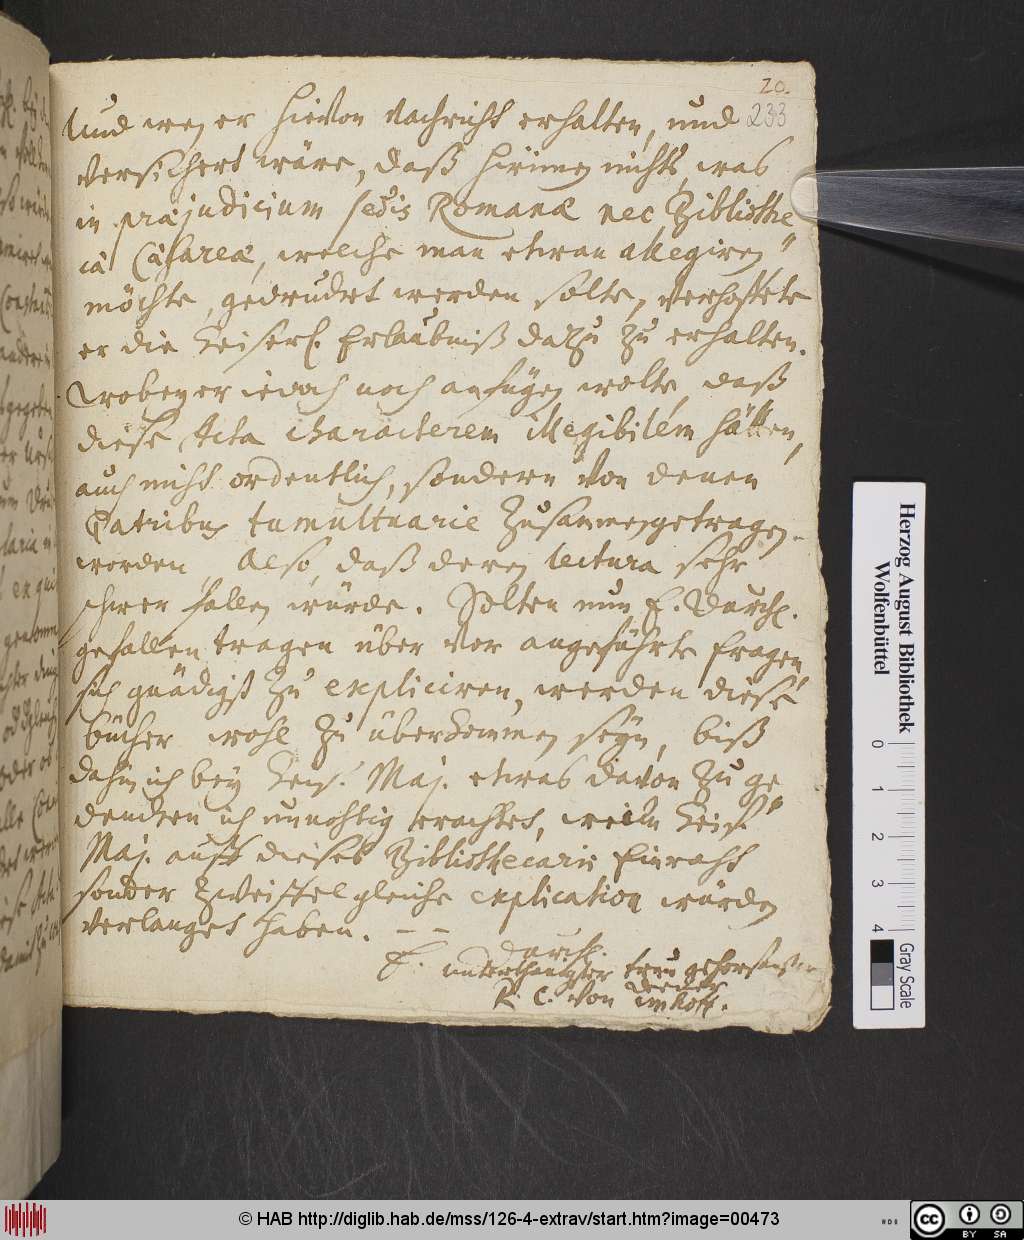 20.
233
Und wen er hievon nachricht erhalten, und
versichert wäre, daß hirinnen nichts, was
in præjudicium sedis Romanæ nec Bibliothe
cæ Cæsareæ, welche man etwan allegiren
möchte, gedruckt werden solte, verhoffete
er die Keiserl. Erlaubniß dazu zu erhalten.
Wobey er iedoch noch anfügen wolte, daß
diese Acta characterem illegibilem hätten,
auch nicht ordentlich, sondern von denen
Patribus tumultuarie zusammengetragen
worden, Also, daß deren lectura sehr
schwer fallen würde. Solten nun E. Durchl.
gefallen tragen über vor angeführte fragen
sich gnädigst zu expliciren, werden diese
bücher wohl zu überkommen seyn, biß
dahin ich bey Keis. Maj. etwas davon zu ge
dencken ich unnöhtig erachtet, weiln Keis.
Maj. auff dieses Bibliothecarii Einraht
sonder Zweiffel gleiche explication würden
verlanget haben. — —
E. Durchl.
unterthänigster treu gehorsamster
R. C. von Imhoff.
Herzog August Bibliothek
Wolfenbüttel
0 1 2 3 4
Gray Scale
© HAB http://diglib.hab.de/mss/126-4-extrav/start.htm?image=00473
cc BY SA